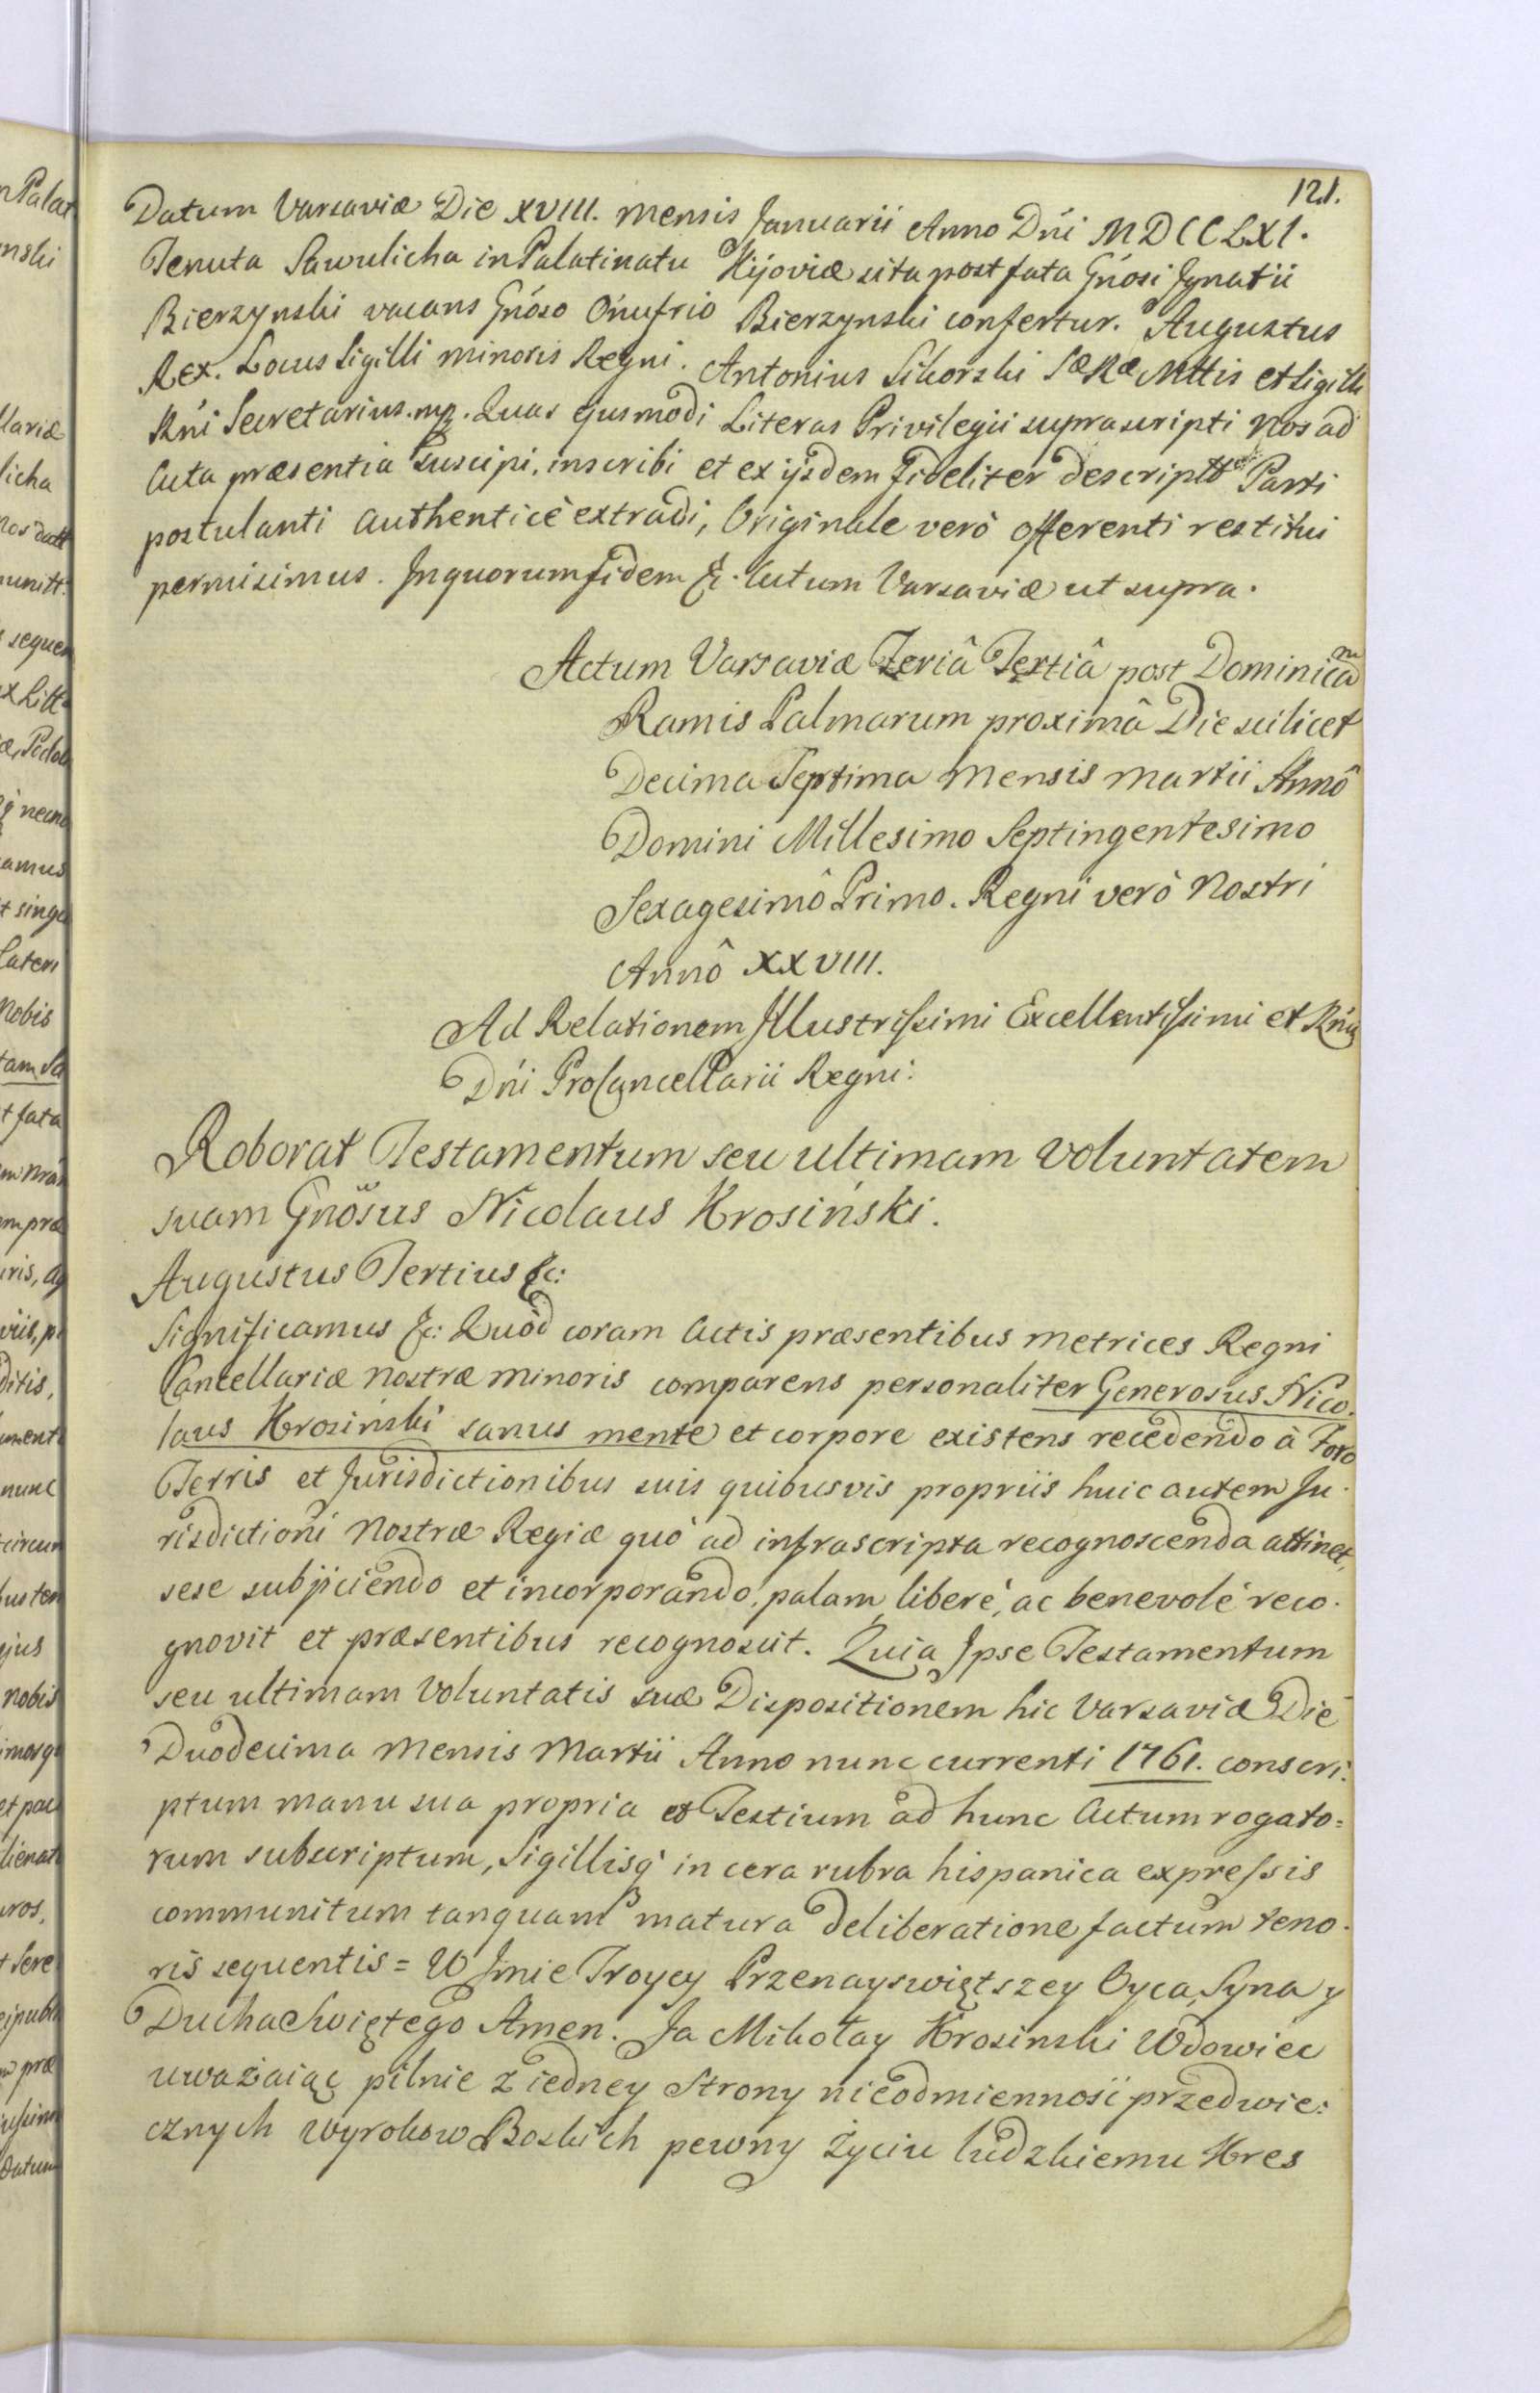 121.
Datum Varsaviæ Die XVIII. mensis Januarii Anno Dńi MDCCLXI.
Tenuta Sawulicha in Palatinatu Kijoviæ sita post fata Gńosi Jgnatii
Bierzynski vacans Gńoso Onufrio Bierzynski confertur. Augustus
Rex. Locus Sigilli minoris Regni. Antonius Sikorski SæRæ Mttis et Sigilli
Rńi Secretarius. mp. Quas ejusmodi Literas Privilegii suprascripti Nos ad
Acta præsentia suscipi, inscribi et ex ijsdem fideliter descriptt Parti
postulanti authenticè extradi, Originale verò offerenti restitui
permisimus. In quorum fidem &. Actum Varsaviæ ut supra.
Actum Varsaviæ Feriâ Tertiâ post Dominicam
Ramis Palmarum proximâ Die scilicet
Decima Septima mensis Martii Annô
Domini Millesimo Septingentesimo
Sexagesimô Primo. Regni verò Nostri
Annô XXVIII.
Ad Relationem Jllustrissimi Excellentissimi et Rńi
Dńi ProCancellarii Regni:
Roborat Testamentum seu ultimam voluntatem
suam Gnősus Nicolaus Krosiński.
Augustus Tertius &c:
Significamus &c: Quòd coram Actis præsentibus metrices Regni
Cancellariæ nostræ minoris comparens personaliter Generosus Nico.
laus Krosiński sanus mente et corpore existens recedendo à Foro
Terris et Jurisdictionibus suis quibusvis propriis huic autem Ju.
risdictioni Nostræ Regiæ quò ad infrascripta recognoscenda attinet,
sese subjiciendo et incorporando, palam, liberè, ac benevolè reco.
gnovit et præsentibus recognoscit. Quia Jpse Testamentum
seu ultimam Voluntatis suæ Dispositionem hic Varsaviæ Die
Duodecima Mensis Martii Anno nunc currenti 1761. conscri.
ptum manu sua propria et Testium ad hunc Actum rogato=
rum subscriptum, Sigillisq́ in cera rubra hispanica expressis
communitum tanquam matura deliberatione factum teno.
ris sequentis = W Jmie Troycy Przenayswiętszey Oyca, Syna y
Ducha Swiętego Amen. Ja Mikołay Krosinski Wdowiec
uważaiąc pilnie z iedney strony nieodmiennosć przedwie:
cznych wyrokow Boskich pewny życiu ludzkiemu Kres